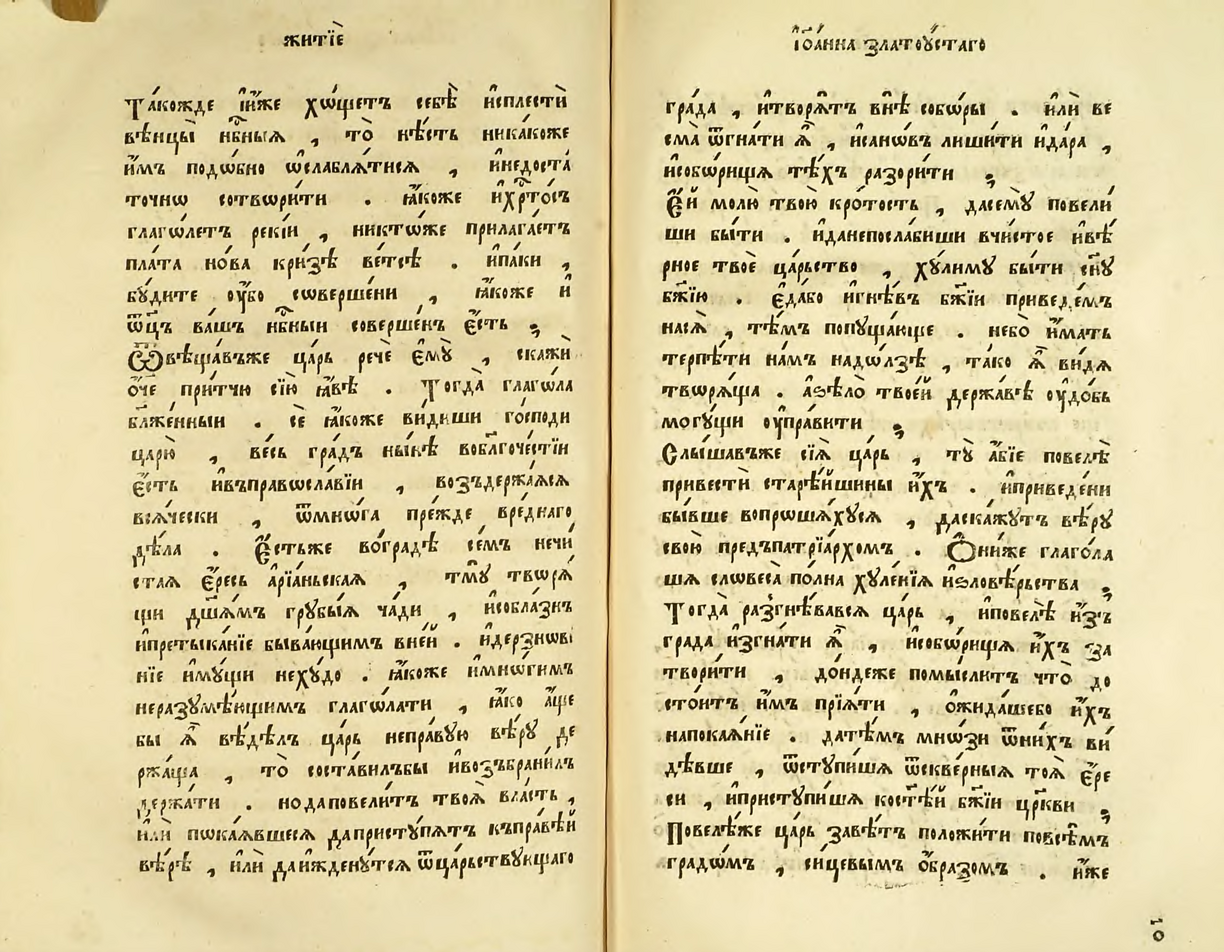 житїѐ
та́кождє и҆и́жє хо́щєтъ сєбѣ̀ и҆сплєстѝ
вѣнцы̀ нб҃ныѧ , то̀ нѣ́сть никакожє
и҆́мъ подо́бно ѡ҆слаблѧ́тисѧ , и҆нєдоста́
точнѡ сотвори́ти . ꙗ҆́кожє и҆хрⷭ҇то́съ
глаго́лєтъ рєкі́и , никто́жє прилага́єтъ
плата нова кри́зѣ вє́тсѣ . и҆па́ки ,
бꙋ́дитє ᲂу҆́бо совєршє́ни , ꙗ҆́кожє и҆
ѿц҃ъ ва́шъ нб҃ныи совєршє́нъ є҆́сть ;
Ѿвѣща́въжє ца́рь рєчѐ є҆мꙋ̀ , скажѝ
о҆́чє при́тчю сїю̀ ꙗ҆́вѣ . Тогда̀ глаго́ла
блажє́нныи . сє̀ ꙗ҆́кожє ви́диши го́споди
царю̀ , вє́сь гра́дъ ны́нѣ воблагочє́стїи
є҆́сть и҆въправосла́вїи , возъдєржа́ѧсѧ
всѧ́чєски , ѿмно́га прє́ждє врє́днаго
дѣ́ла . Є҆́стьжє во́градѣ сє́мъ нєчи́
стаѧ є҆́рєсь а҆рїа́ньскаѧ , тмꙋ̀ творѧ́
щи дш҃а́мъ грꙋ́быѧ ча́ди , и҆собла́знъ
и҆прєтыка́нїє быва́ющимъ внє́й . и҆дєрзновє́
нїє и҆мꙋ́щи нєхꙋ́до . ꙗ҆́кожє и҆мно́гимъ
нєразꙋмѣ́ющимъ глаго́лати , ꙗ҆́ко а҆́щє
бы ѧ҆̀ вѣ́дѣлъ ца́рь нєпра́вꙋю вѣ́рꙋ дє
ржа́ща , то̀ соста́вилъбы и҆возъбрани́лъ
дєржа́ти . нодаповєли́тъ твоѧ̀ вла́сть ,
и҆лѝ пока́ѧвшєсѧ дапристꙋ́пѧтъ къпра́вѣй
вѣ́рѣ , и҆лѝ даи҆ждєнꙋ́тсѧ ѿца́рьствꙋющаго
і҆ѡа́нна златоꙋ́стаго
гра́да , и҆творѧ́тъ внѣ̀ собо́ры . и҆лѝ вє
сма̀ ѿгна́ти ѧ҆̀ , и҆сано́въ лиши́ти и҆да́ра ,
и҆собо́рищѧ тѣ́хъ разори́ти ;
Є҆́й молю̀ твою̀ кро́тость , дасємꙋ̀ повєли́
ши бы́ти . и҆данєпосла́биши вчи́стоє и҆вѣ́
рноє твоє̀ ца́рьство , хꙋли́мꙋ бы́ти сн҃ꙋ
бж҃їю . є҆да́бо и҆гнѣ́въ бж҃їи привєдє́мъ
насѧ̀ , тѣ́мъ попꙋща́ющє . нєбо̀ и҆́мать
тєрпѣ́ти на́мъ надо́лзѣ , та́ко ѧ҆̀ ви́дѧ
творѧ́ща . а҆ѕѣ́ло твоє́й дєржа́вѣ ᲂу҆до́бь
могꙋ́щи ᲂу҆пра́вити ;
Слы́шавъжє сїѧ̀ ца́рь , тꙋ̀ а҆́бїє повєлѣ̀
привєстѝ старѣ́йшины и҆́хъ . и҆привєдє́ни
бы́вшє вопроша́хꙋсѧ , даска́жꙋтъ вѣ́рꙋ
свою̀ прєдъпатрїа́рхомъ . Ѻ҆ни́жє глаго́ла
шѧ словєса̀ по́лна хꙋлє́нїѧ и҆ѕловѣ́рьства ;
Тогда̀ разгнѣ́вавсѧ ца́рь , и҆повєлѣ̀ и҆зъ
града и҆згна́ти ѧ҆̀ , и҆собо́рищѧ и҆́хъ за
твори́ти , до́ндєжє помы́слитъ что̀ до
сто́итъ и҆́мъ прїѧ́ти , ѡ҆жида́шєбо и҆́хъ
напокаѧ́нїє . датѣ́мъ мно́зи ѿни́хъ ви́
дѣвшє , ѿстꙋпи́шѧ ѿсквє́рныѧ тоѧ̀ є҆́рє
си , и҆пристꙋпи́шѧ костѣ́й бж҃їи цр҃кви ;
Повєлѣ́жє ца́рь завѣ́тъ положи́ти повсѣ́мъ
градо́мъ , си́цєвымъ о҆́бразомъ . и҆́жє
о҃